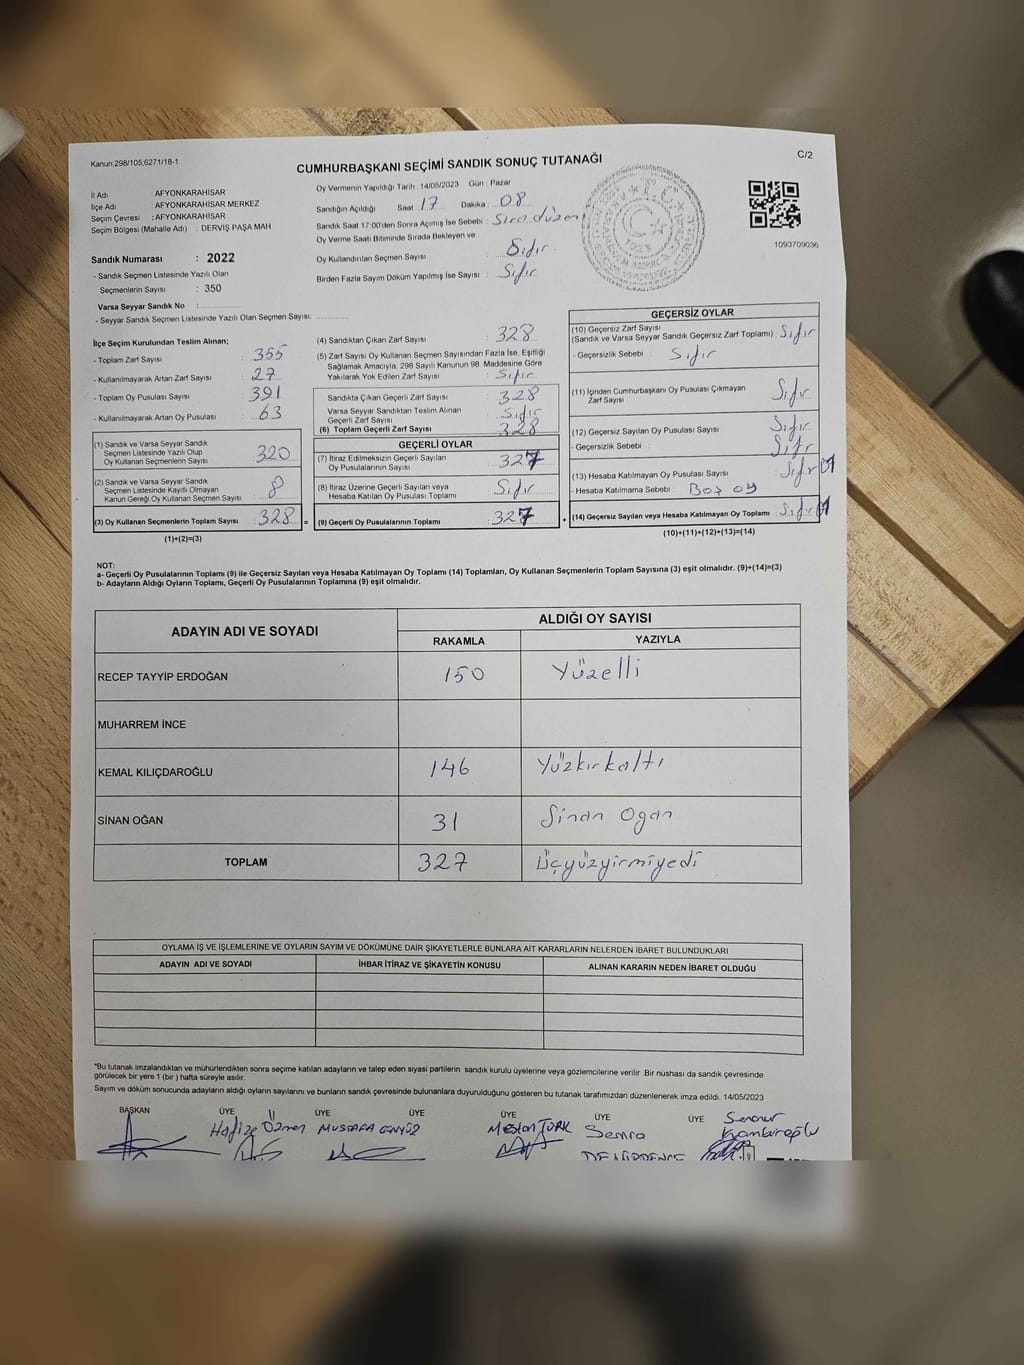 Kanun:298/105;6271/18-1
CUMHURBAŞKANI SEÇİMİ SANDIK SONUÇ TUTANAĞI
C/2
İl Adı : AFYONKARAHİSAR
İlçe Adı : AFYONKARAHİSAR MERKEZ
Seçim Çevresi : AFYONKARAHİSAR
Seçim Bölgesi (Mahalle Adı) : DERVİŞ PAŞA MAH
Sandık Numarası : 2022
- Sandık Seçmen Listesinde Yazılı Olan
Seçmenlerin Sayısı : 350
Varsa Seyyar Sandık No :
- Seyyar Sandık Seçmen Listesinde Yazılı Olan Seçmen Sayısı:
Oy Vermenin Yapıldığı Tarih : 14/05/2023 Gün : Pazar
Sandığın Açıldığı Saat : 17 Dakika : 08
Sandık Saat 17:00'den Sonra Açılmış İse Sebebi : Sıra düzeni
Oy Verme Saati Bitiminde Sırada Bekleyen ve
Oy Kullandırılan Seçmen Sayısı : Sıfır
Birden Fazla Sayım Döküm Yapılmış İse Sayısı : Sıfır
1093709036
İlçe Seçim Kurulundan Teslim Alınan;
- Toplam Zarf Sayısı : 355
- Kullanılmayarak Artan Zarf Sayısı : 27
- Toplam Oy Pusulası Sayısı : 391
- Kullanılmayarak Artan Oy Pusulası : 63
(1) Sandık ve Varsa Seyyar Sandık
Seçmen Listesinde Yazılı Olup
Oy Kullanan Seçmenlerin Sayısı : 320
(2) Sandık ve Varsa Seyyar Sandık
Seçmen Listesinde Kayıtlı Olmayan
Kanun Gereği Oy Kullanan Seçmen Sayısı : 8
(3) Oy Kullanan Seçmenlerin Toplam Sayısı : 328
(1)+(2)=(3)
(4) Sandıktan Çıkan Zarf Sayısı : 328
(5) Zarf Sayısı Oy Kullanan Seçmen Sayısından Fazla İse, Eşitliği
Sağlamak Amacıyla, 298 Sayılı Kanunun 98. Maddesine Göre
Yakılarak Yok Edilen Zarf Sayısı : Sıfır
Sandıkta Çıkan Geçerli Zarf Sayısı : 328
Varsa Seyyar Sandıktan Teslim Alınan
Geçerli Zarf Sayısı : Sıfır
(6) Toplam Geçerli Zarf Sayısı : 328
GEÇERLİ OYLAR
(7) İtiraz Edilmeksizin Geçerli Sayılan
Oy Pusulalarının Sayısı : 327
(8) İtiraz Üzerine Geçerli Sayılan veya
Hesaba Katılan Oy Pusulası Toplamı : Sıfır
= (9) Geçerli Oy Pusulalarının Toplamı : 327
GEÇERSİZ OYLAR
(10) Geçersiz Zarf Sayısı
(Sandık ve Varsa Seyyar Sandık Geçersiz Zarf Toplamı) : Sıfır
- Geçersizlik Sebebi : Sıfır
(11) İçinden Cumhurbaşkanı Oy Pusulası Çıkmayan
Zarf Sayısı : Sıfır
(12) Geçersiz Sayılan Oy Pusulası Sayısı : Sıfır
- Geçersizlik Sebebi : Sıfır
(13) Hesaba Katılmayan Oy Pusulası Sayısı : Sıfır 01
- Hesaba Katılmama Sebebi : Boş oy
+ (14) Geçersiz Sayılan veya Hesaba Katılmayan Oy Toplamı : Sıfır 01
(10)+(11)+(12)+(13)=(14)
NOT:
a- Geçerli Oy Pusulalarının Toplamı (9) ile Geçersiz Sayılan veya Hesaba Katılmayan Oy Toplamı (14) Toplamları, Oy Kullanan Seçmenlerin Toplam Sayısına (3) eşit olmalıdır. (9)+(14)=(3)
b- Adayların Aldığı Oyların Toplamı, Geçerli Oy Pusulalarının Toplamına (9) eşit olmalıdır.
ADAYIN ADI VE SOYADI
ALDIĞI OY SAYISI
RAKAMLA YAZIYLA
RECEP TAYYİP ERDOĞAN 150 Yüzelli
MUHARREM İNCE
KEMAL KILIÇDAROĞLU 146 Yüzkırkaltı
SİNAN OĞAN 31 Sinan Ogan
TOPLAM 327 Üçyüzyirmiyedi
OYLAMA İŞ VE İŞLEMLERİNE VE OYLARIN SAYIM VE DÖKÜMÜNE DAİR ŞİKAYETLERLE BUNLARA AİT KARARLARIN NELERDEN İBARET BULUNDUKLARI
ADAYIN ADI VE SOYADI İHBAR İTİRAZ VE ŞİKAYETİN KONUSU ALINAN KARARIN NEDEN İBARET OLDUĞU
*Bu tutanak imzalandıktan ve mühürlendikten sonra seçime katılan adayların ve talep eden siyasi partilerin sandık kurulu üyelerine veya gözlemcilerine verilir. Bir nüshası da sandık çevresinde
görülecek bir yere 1 (bir) hafta süreyle asılır.
Sayım ve döküm sonucunda adayların aldığı oyların sayılarını ve bunların sandık çevresinde bulunanlara duyurulduğunu gösteren bu tutanak tarafımızdan düzenlenerek imza edildi. 14/05/2023
BAŞKAN ÜYE ÜYE ÜYE ÜYE ÜYE ÜYE
Hafize Özmen MUSTAFA Meltem TÜRK Semra Senanur